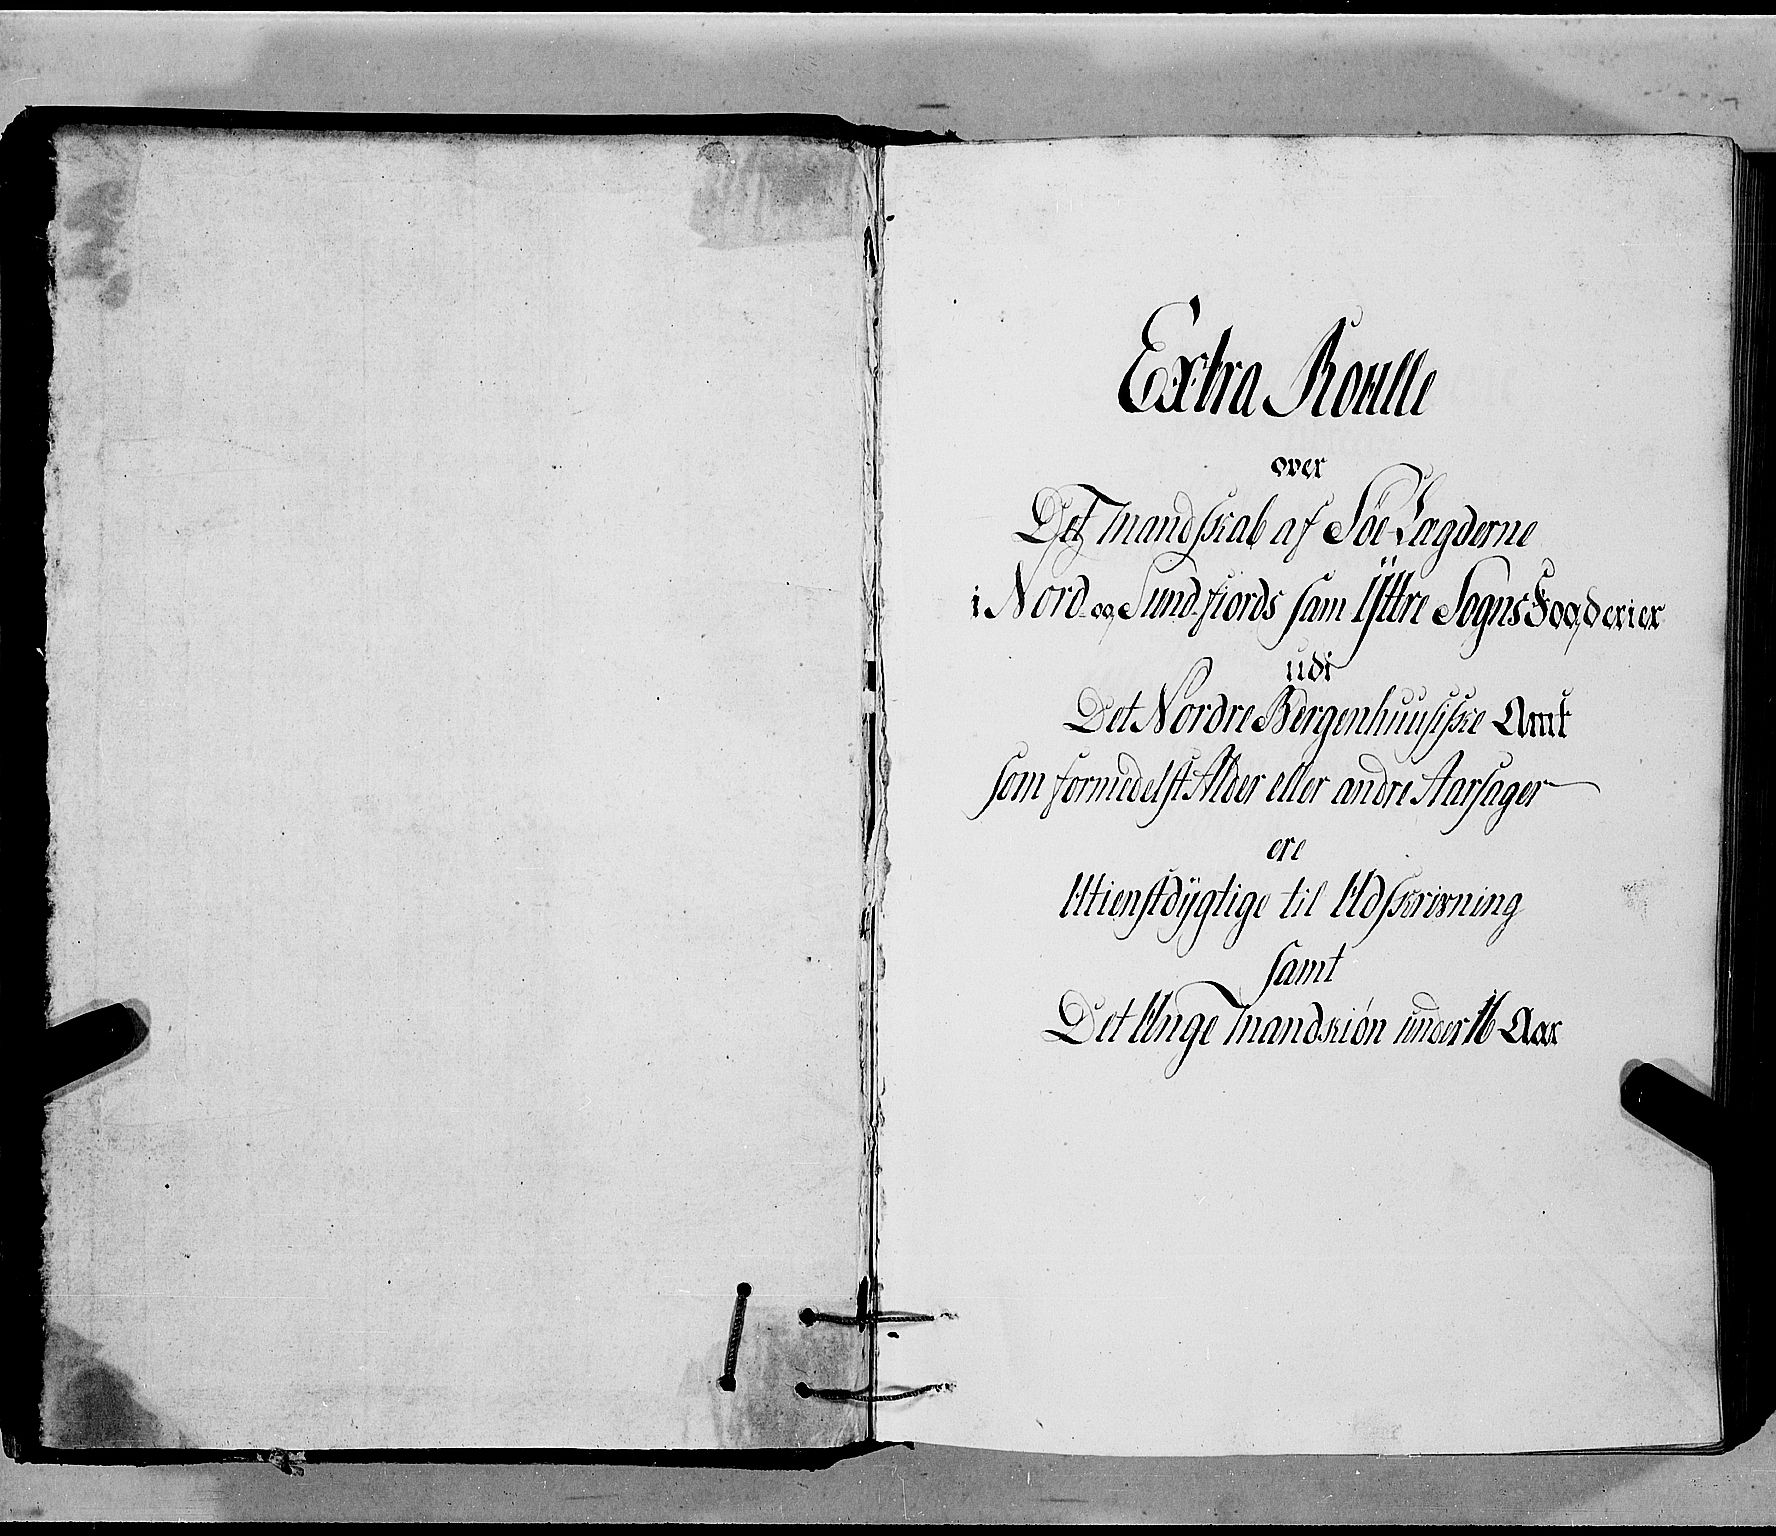 Extra Roulle
over
Det Mandskab af Söe-Lagderne
i Nord- og Sund-fiords sam Ÿttre Sogns Fogderier
udi
Det Nordre Bergenhuusiske Amt
som formedelst Alder eller andre Aarsager
ere
Utienstdÿgtige til Udskrivning
samt
Det Unge Mandkiön under 16 Aar